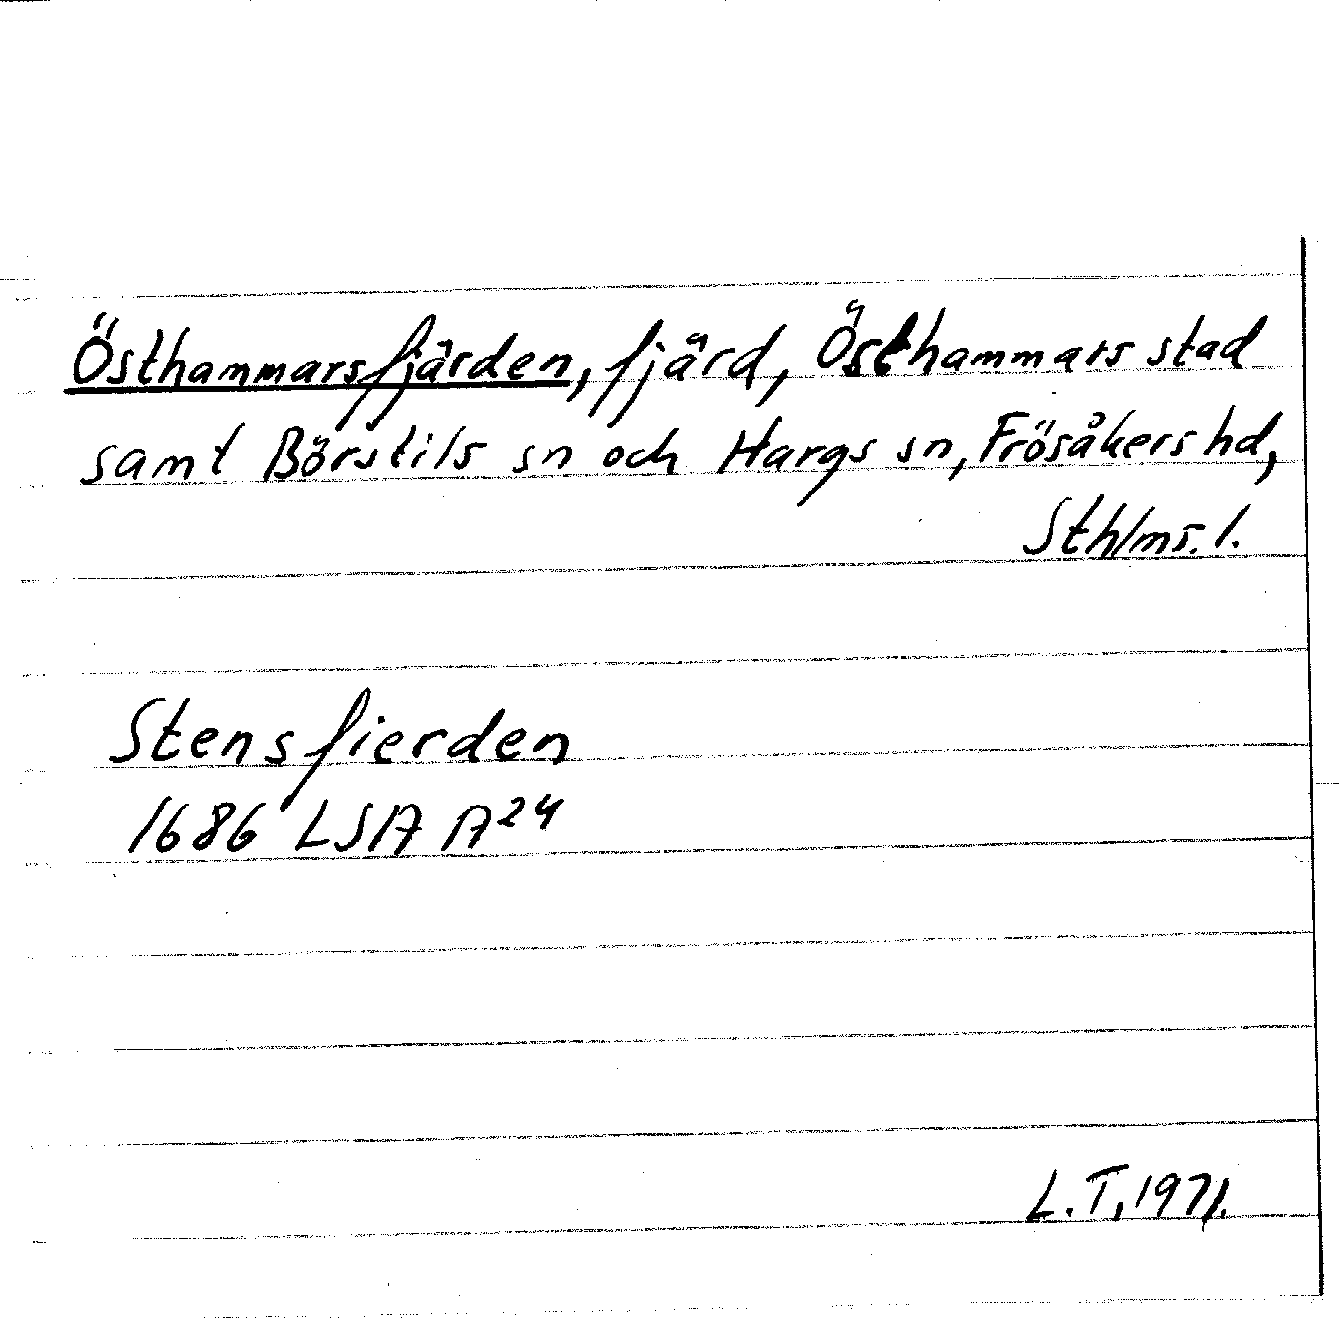 Östhammarsfjärden, fjärd, Östhammars stad
samt Börstils sn och Hargs sn, Frösåkers hd,
Sthlms. l.
Stensfierden
1686 LSA A24
L.T. 1971.